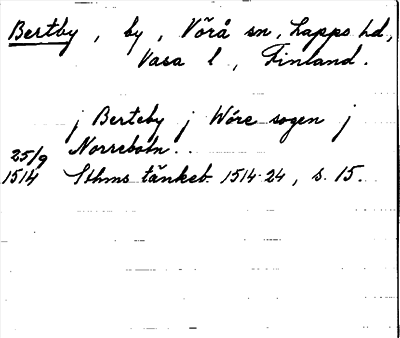 Bertby, by, Vörå sn, Lappo hd,
Vasa l, Finland.
j Berteby j Wöre sogen j
25/9 Norrebotn..
1514 Sthms tänkeb. 1514-24, s. 15.